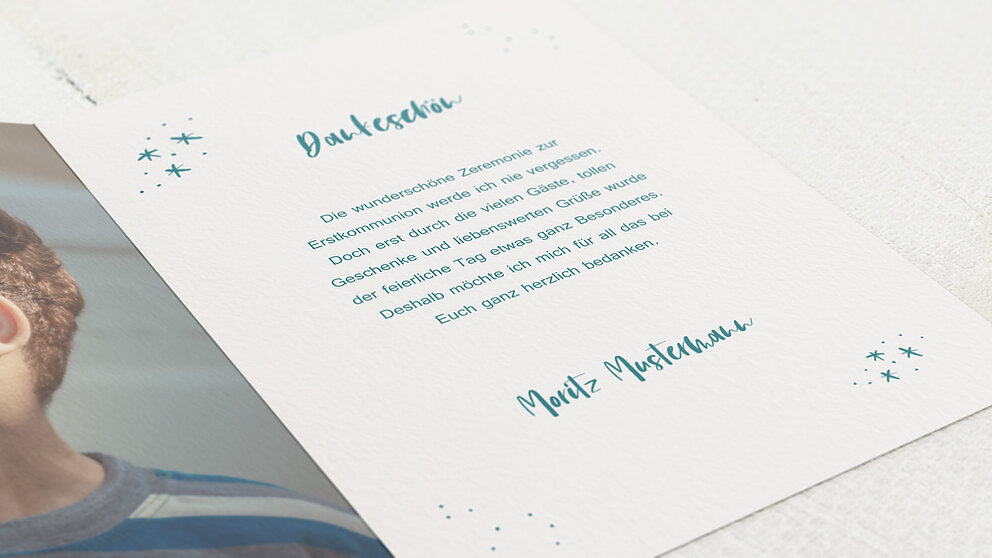 Dankeschön
Die wunderschöne Zeremonie zur
Erstkommunion werde ich nie vergessen.
Doch erst durch die vielen Gäste, tollen
Geschenke und liebenswerten Grüße wurde
der feierliche Tag etwas ganz Besonderes.
Deshalb möchte ich mich für all das bei
Euch ganz herzlich bedanken.
Moritz Mustermann